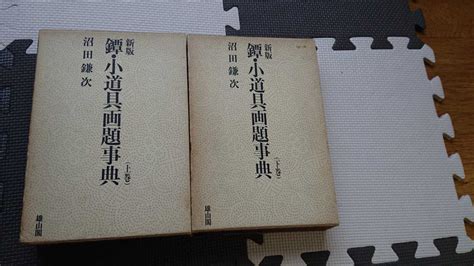 新版
鐔・小道具画題事典
（上巻）
沼田鎌次
雄山閣
新版
鐔・小道具画題事典
（下巻）
沼田鎌次
雄山閣